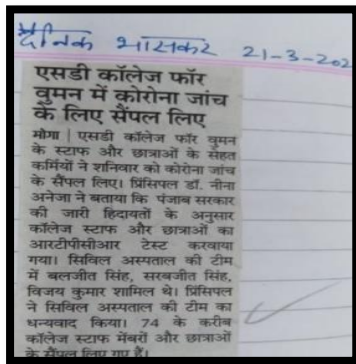 दैनिक भास्कर 21-3-202
एसडी कॉलेज फॉर
वुमन में कोरोना जांच
के लिए सैंपल लिए
मोगा | एसडी कॉलेज फॉर वुमन
के स्टाफ और छात्राओं के सेहत
कर्मियों ने शनिवार को कोरोना जांच
के सैंपल लिए। प्रिंसिपल डॉ. नीना
अनेजा ने बताया कि पंजाब सरकार
की जारी हिदायतों के अनुसार
कॉलेज स्टाफ और छात्राओं का
आरटीपीसीआर टेस्ट करवाया
गया। सिविल अस्पताल की टीम
में बलजीत सिंह, सरबजीत सिंह,
विजय कुमार शामिल थे। प्रिंसिपल
ने सिविल अस्पताल की टीम का
धन्यवाद किया। 74 के करीब
कॉलेज स्टाफ मेंबरों और छात्राओं
के सैंपल लिए गए हैं।